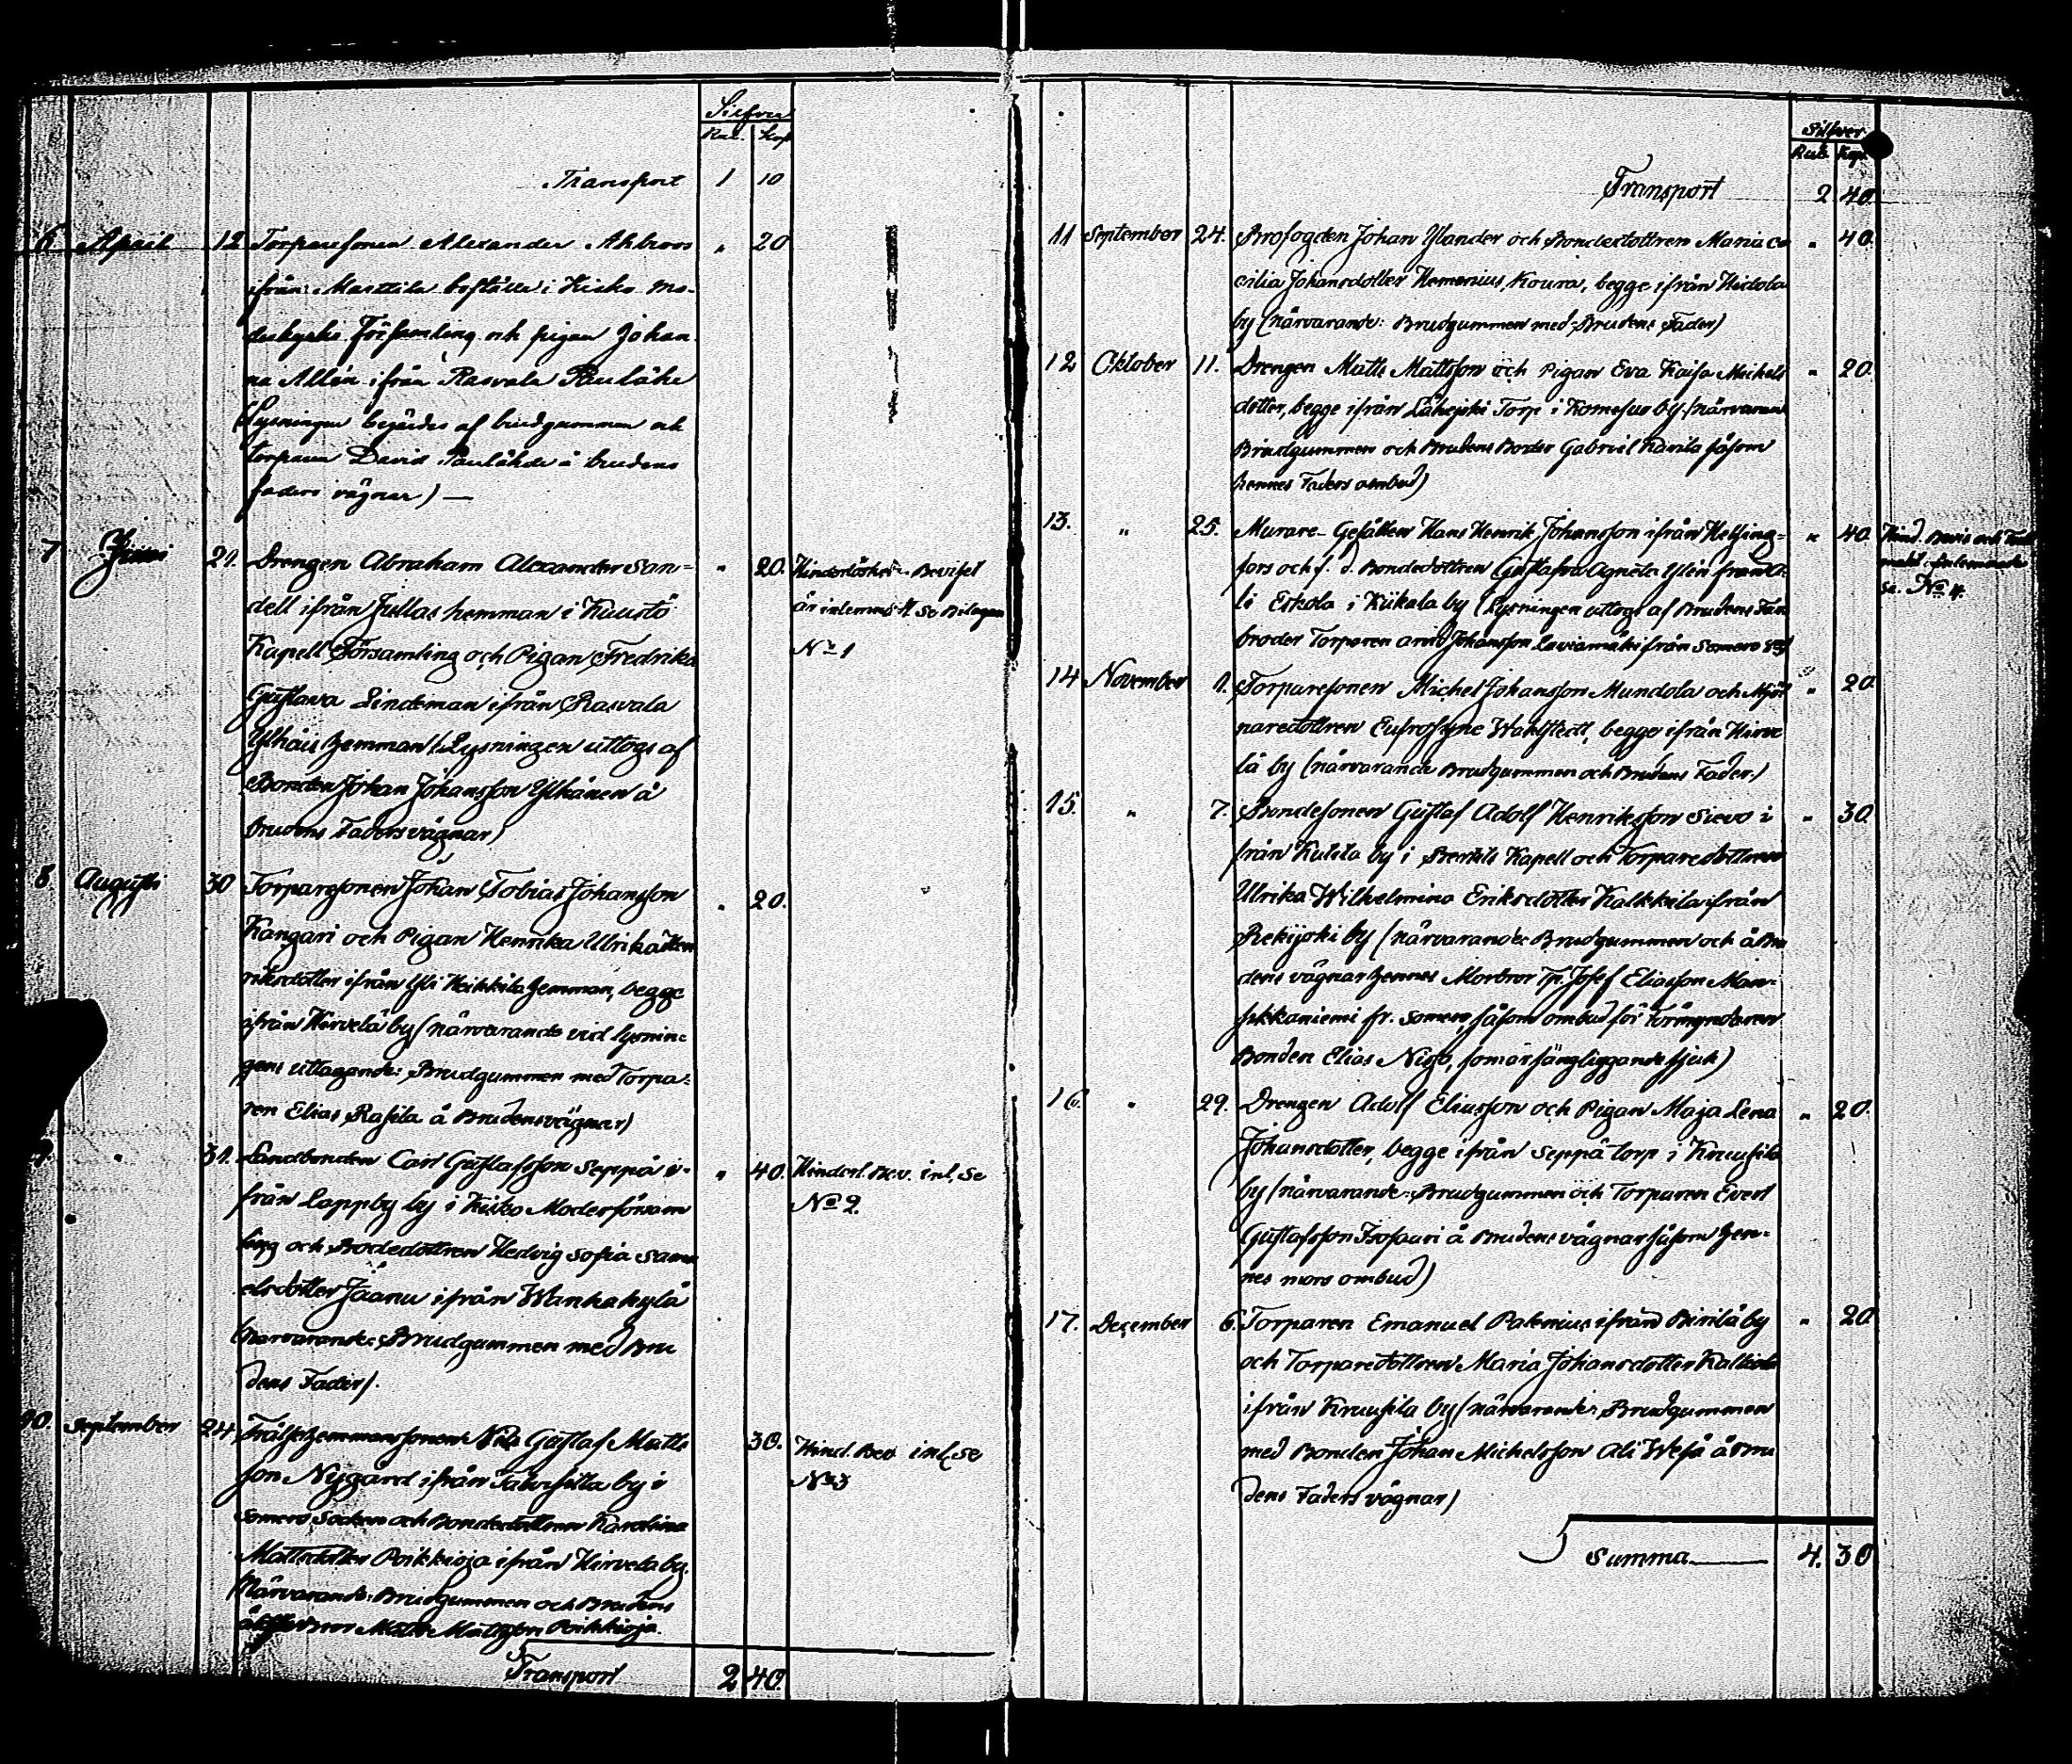 Silfver
Rub. Kop.
Transport 1 10
6 April 12 Torparesonen Alexander Ahlroos „ 20
ifrån Marttila boställe i Kisko mo-
derkyrko Församling och pigan Johan
na Allén ifrån Rasvala Paulähde
(Lysningen begärdes af brudgummen och
torparen David Paulähde å brudens
faders vägnar) —
7 Juni 21. Drengen Abraham Alexander San= „ 20. Hinderlöshets Beviset
dell ifrån Jullas hemman i Kuustö är inlemnadt. Se Bilagan
Kapell Församling och Pigan Fredrika No 1
Gustava Lindeman ifrån Rasvala
Ylhäis hemman (Lysningen uttogs af
Bonden Johan Johansson Ylhänen å
brudens Faders vägnar)
8 Augusti 30 Torparesonen Johan Tobias Johansson „ 20.
Kangari och Pigan Henrika Ulrika Hen
riksdotter ifrån Yli Heikkilä hemman, begge
ifrån Hirvelä by (närvarande vid lysnin=
gens uttagande: Brudgummen med Torpa=
ren Elias Rasila å Brudens vägnar)
9. „ 31. Landbonden Carl Gustafsson Seppä i- „ 40. Hinderl. Bev. inl, Se
från Lappby by i Kisko Moderförsam No 2.
ling och Bodedottren Hedvig Sofia Samu
elsdotter Jaanu ifrån Wanhakylä
(närvarande: Brudgummen med Bru
dens Fader).
10. September 24. Frälsehemmanssonen Nils Gustaf Matts 30. Hind. Bev inl, Se
son Nygård ifrån Talvisilla by i No 3
Somero Socken och Bondedottren Karolina
Mattsdotter Poikkioja ifrån Hirvelä by.
(Närvarande: Brudgummen och Brudens
Bror Matts Mattsson Poikkioja.
Transport 2 40.
Silfver
Rub. Kop.
Transport 2 40
11 September 24. Brofogden Johan Ylander och Bondedottren Maria Ce „ 40.
cilia Johansdotter Hemenius, Koura, begge ifrån Hidola
by (närvarande: Brudgummen med Brudens Fader)
12 Oktober 11. Drengen Matts Mattsson och Pigan Eva Kaisa Michels „ 20.
dotter, begge ifrån Lähejoki Torp i Komisuo by (närvarand
Brudgummen och Brudens Broder Gabriel Kavila såsom
hennes Faders ombud)
13. „ 25. Murare-Gesällen Hans Henrik Johansson ifrån Helsing= „ 40. Hind. Bevis och Full
fors och f. d. Bondedottren Gustafva Agneta Ylén från A= makt inlemnade
li Eskola i Kiikala by (Lysningen uttogs af Brudens Far se. No 4.
broder Torparen Arvid Johansson Laviamäki från Somero
14 November 1. Torparesonen Michel Johansson Mundola och Mjöl „ 20.
naredottren Eufrosyne Wahlstedt, begge ifrån Hirve
lä by (närvarande Brudgummen och Brudens Fader.)
15. „ 7. Bondesonen Gustaf Adolf Henriksson Sievo i „ 30.
från Kutila by i Bertils Kapell och Torparedottren
Ulrika Wilhelmina Eriksdotter Kalkkila ifrån
Rekijoki by (närvarande: Brudgummen och å Bru
dens vägnar hennes Morbror Tp. Josef Eliasson Man=
sikkaniemi fr. Somero, såsom ombud för Förmyndaren
Bonden Elias Nigo, som är sängliggande sjuk)
16. „ 29. Drengen Adolf Eliasson och Pigan Maja Lena „ 20.
Johansdotter, begge ifrån Seppä torp i Kruusila
by (närvarande: Brudgummen och Torparen Evert
Gustafsson Isosauri å Brudens vägnar såsom hen=
nes mors ombud)
17. December 6. Torparen Emanuel Palenius ifrån Pirilä by „ 20
och Torparedottren Maria Johansdotter Kalkiala
ifrån Kruusila by (närvarande: Brudgummen
med Bonden Johan Michelsson Ali Wesa å Bru
dens Faders vägnar)
Summa 4. 30